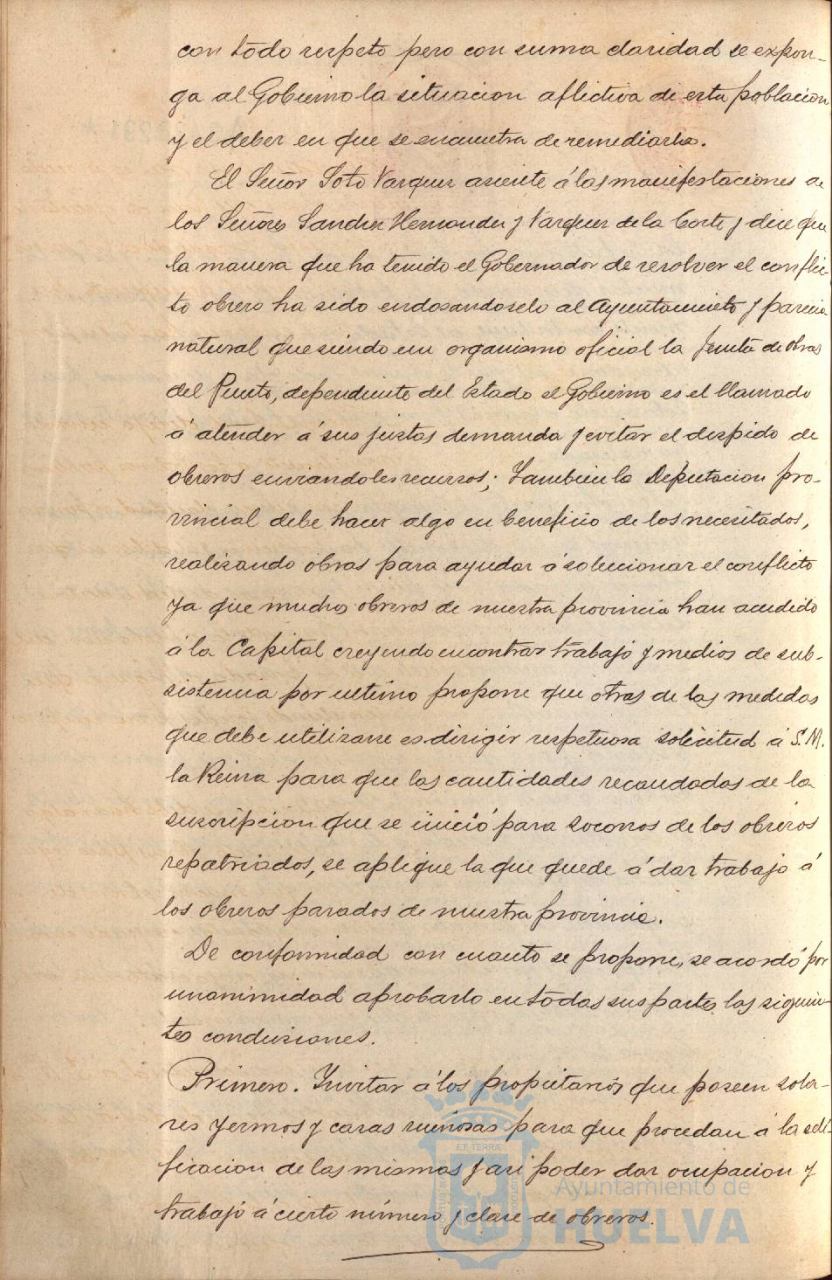 con todo respeto pero con suma claridad se expon-
ga al Gobierno la situacion aflictiva de esta poblacion
y el deber en que se encuentra de remediarla.
El Señor Soto Vazquez asiente á las manifestaciones de
los Señores Sanchez Hernandez y Vazquez de la Corte y dice que
la manera que ha tenido el Gobernador de resolver el conflic-
to obrero ha sido endosandoselo al Ayuntamiento y parecia
natural que siendo un organismo oficial la Junta de obras
del Puerto, dependiente del Estado el Gobierno es el llamado
á atender á sus justas demanda y evitar el despido de
obreros enviandoles recursos; tambien la Deputacion pro-
vincial debe hacer algo en beneficio de los necesitados,
realizando obras para ayudar á solucionar el conflicto
ya que muchos obreros de nuestra provincia han acudido
á la Capital creyendo encontrar trabajo y medios de sub-
sistencia por ultimo propone que otras de las medidas
que debe utilizarse es dirigir respetuosa solicitud á S.M.
la Reina para que las cantidades recaudadas de la
suscripcion que se inició para socorros de los obreros
repatriados, se aplique la que quede á dar trabajo á
los obreros parados de nuestra provincia.
De conformidad con cuanto se propone, se acordó por
unanimidad aprobarlo en todas sus partes, las siguien-
tes conclusiones.
Primero. Invitar á los propietarios que poseen sola-
res yermos y casas ruinosas para que procedan á la edi-
ficacion de las mismas y asi poder dar ocupacion y
trabajo á cierto número y clase de obreros.
Ayuntamiento de
HUELVA